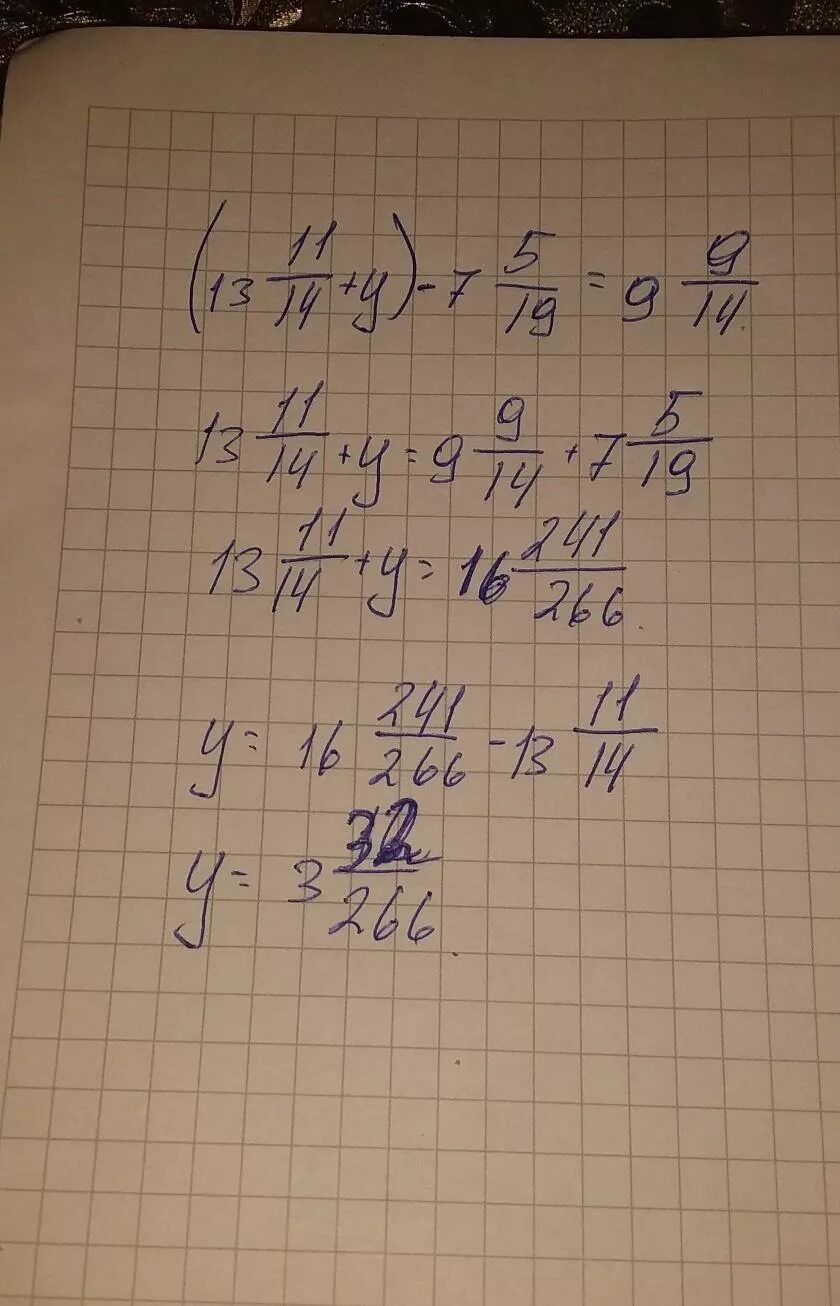 (13 11/14 + y) - 7 5/19 = 9 9/14.
13 11/14 + y = 9 9/14 + 7 5/19
13 11/14 + y = 16 241/266.
y = 16 241/266 - 13 11/14
y = 3 32/266.